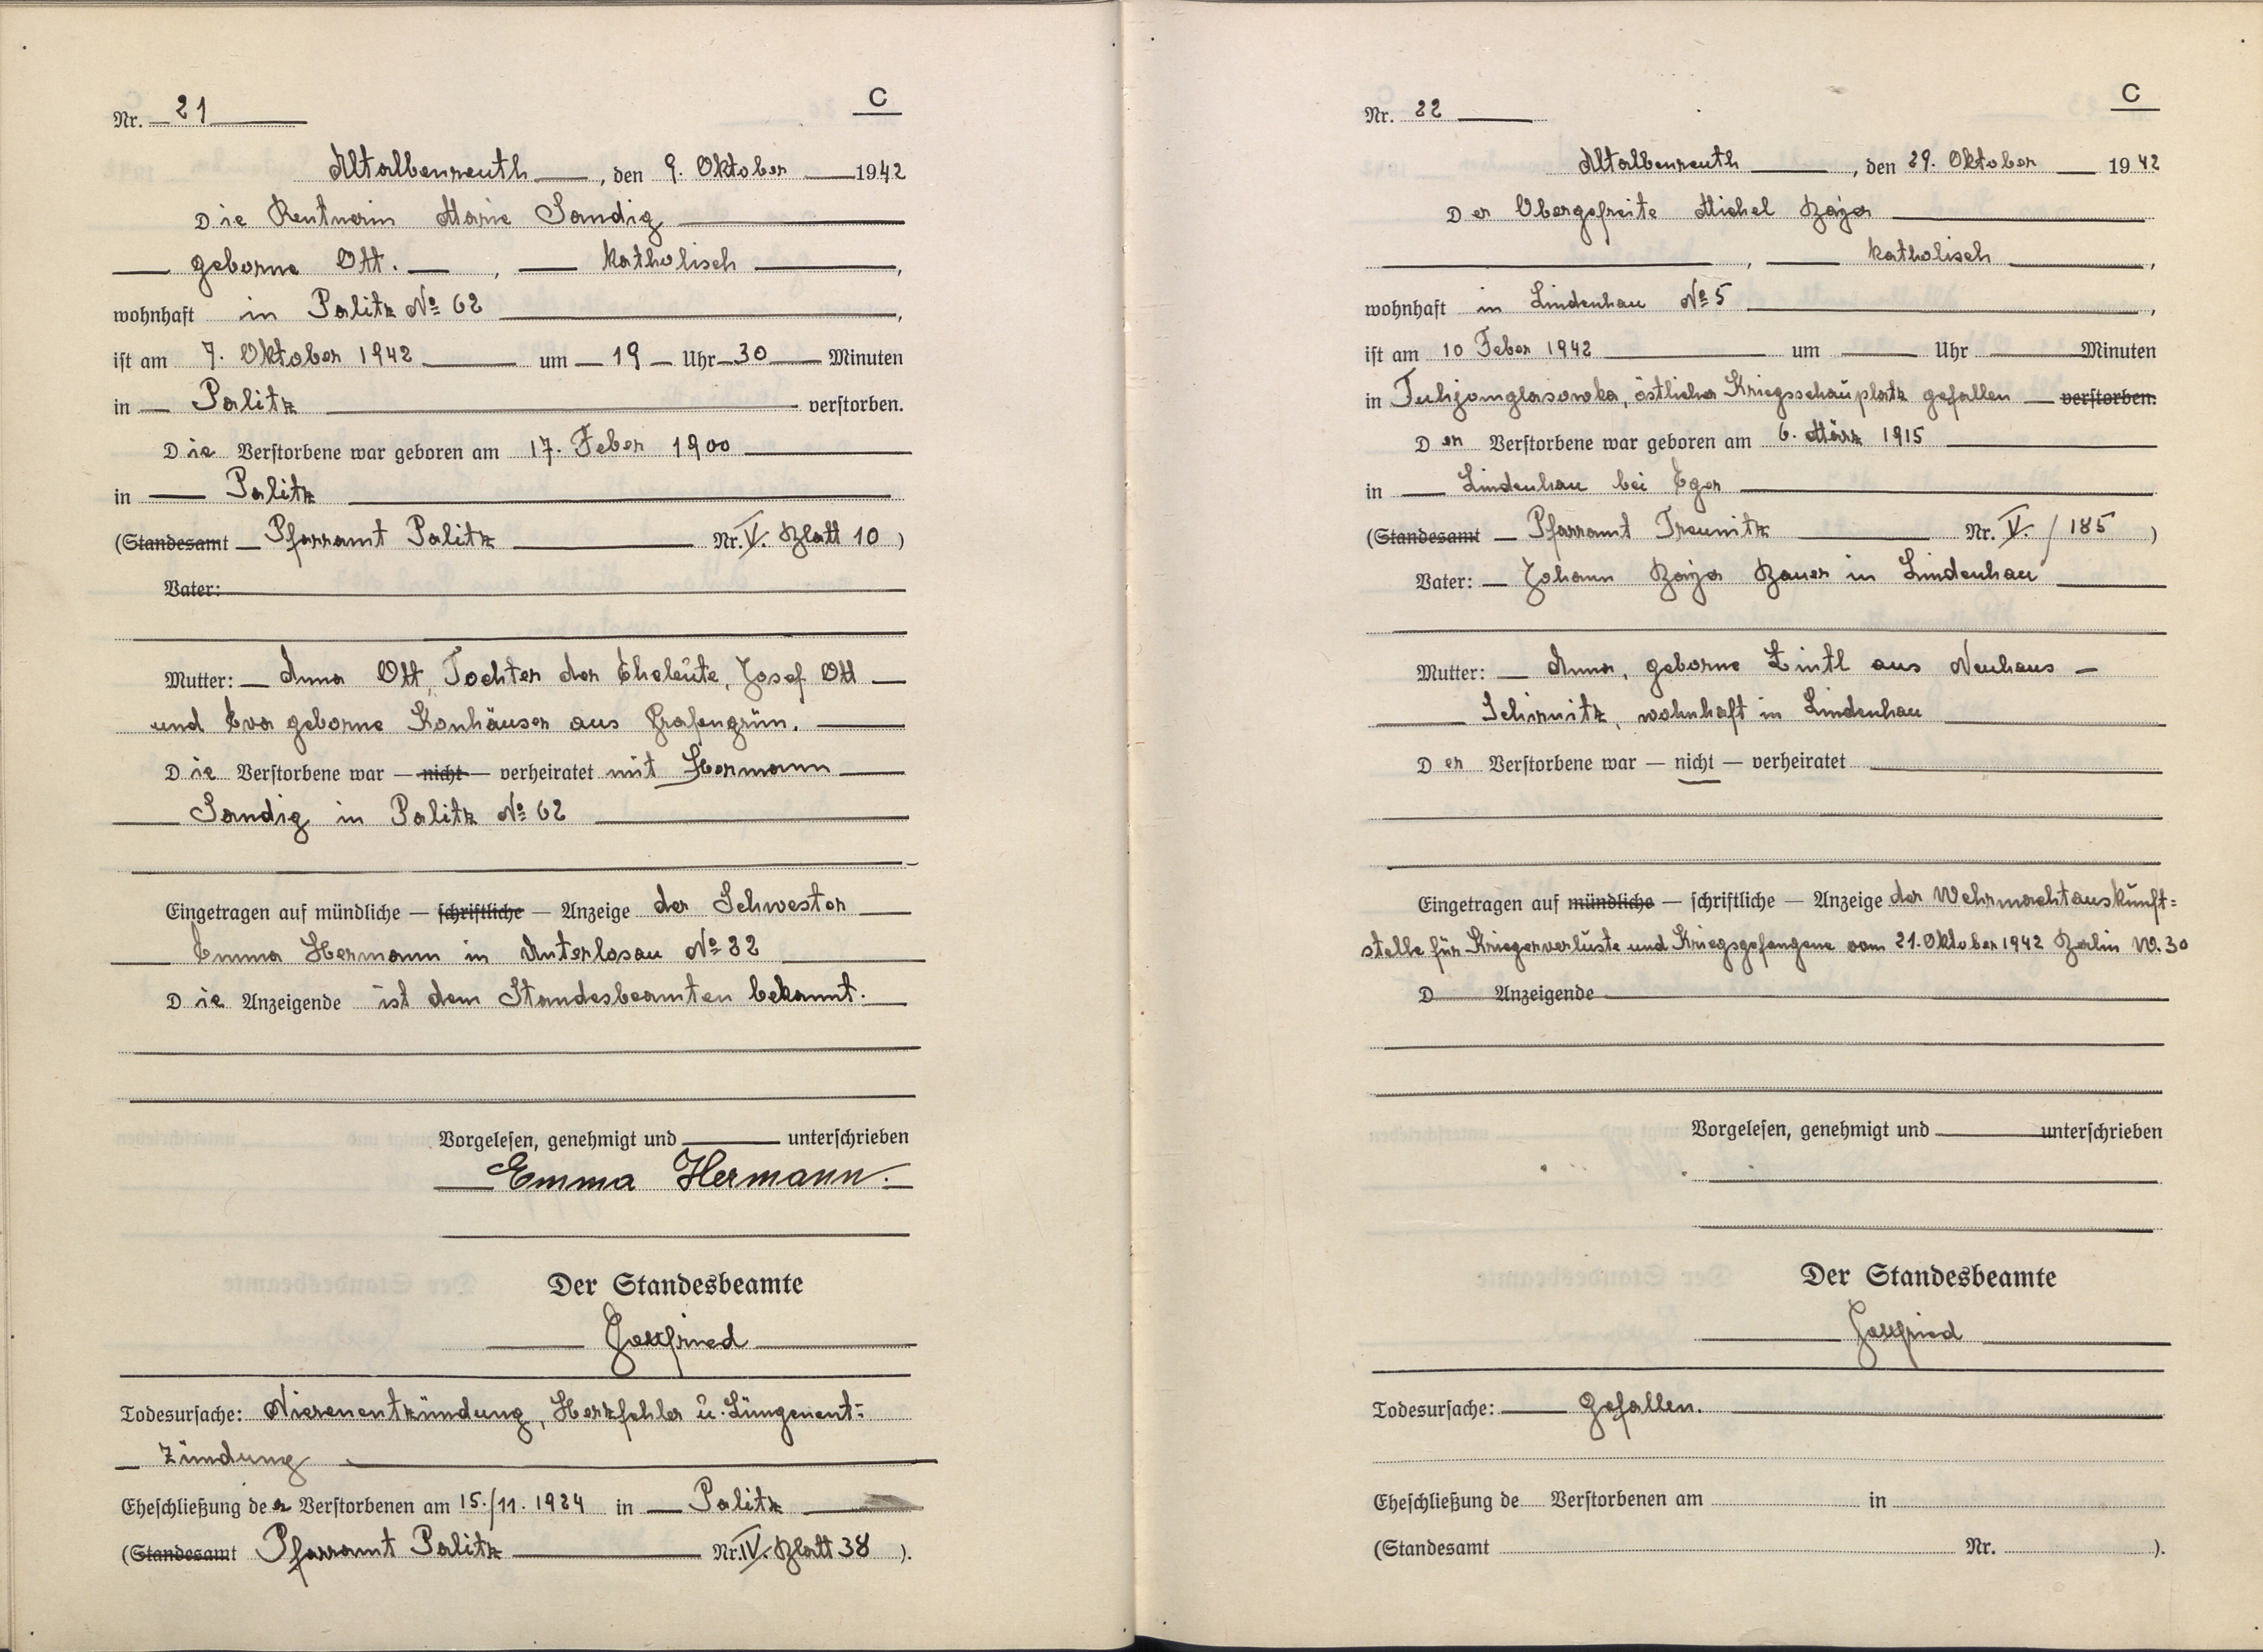 C
Nr. 21
Altalbenreuth, den 9. Oktober 1942
Die Rentnerin Marie Sandig
geborne Ott. , katholisch ,
wohnhaft in Palitz No 62 ,
ist am 7. Oktober 1942 um 19 Uhr 30 Minuten
in Palitz verstorben.
Die Verstorbene war geboren am 17. Feber 1900
in Palitz
(Standesamt Pfarramt Palitz Nr. V. Blatt 10 )
Vater:
Mutter: Anna Ott, Tochter der Eheleute, Josef Ott
und Eva geborne Konhäuser aus Grafengrün.
Die Verstorbene war — nicht — verheiratet mit Hermann
Sandig in Palitz No 62
Eingetragen auf mündliche — schriftliche — Anzeige der Schwester
Emma Hermann in Unterlosau No 32
Die Anzeigende ist dem Standesbeamten bekannt.
Vorgelesen, genehmigt und unterschrieben
Emma Hermann.
Der Standesbeamte
Gottfried
Todesursache: Nierenentzündung, Herzfehler u. Lungenent=
zündung
Eheschließung der Verstorbenen am 15./11. 1924 in Palitz
(Standesamt Pfarramt Palitz Nr. IV. Blatt 38 ).
C
Nr. 22
Altalbenreuth, den 29. Oktober 1942
Der Obergefreite Michel Bajer
, katholisch ,
wohnhaft in Lindenhau No 5 ,
ist am 10 Feber 1942 um Uhr Minuten
in östlicher Kriegsschauplatz gefallen verstorben.
Der Verstorbene war geboren am 6. März 1915
in Lindenhau bei Eger
(Standesamt Pfarramt Treunitz Nr. V. / 185 )
Vater: Johann Bajer Bauer in Lindenhau
Mutter: Anna, geborne Lintl aus Neuhaus –
Schirnitz, wohnhaft in Lindenhau
Der Verstorbene war — nicht — verheiratet
Eingetragen auf mündliche — schriftliche — Anzeige der Wehrmachtauskunft=
stelle für Kriegerverluste und Kriegsgefangene vom 21. Oktober 1942 Berlin W. 30
D Anzeigende
Vorgelesen, genehmigt und unterschrieben
Der Standesbeamte
Gottfried
Todesursache: Gefallen.
Eheschließung de Verstorbenen am in
(Standesamt Nr. ).